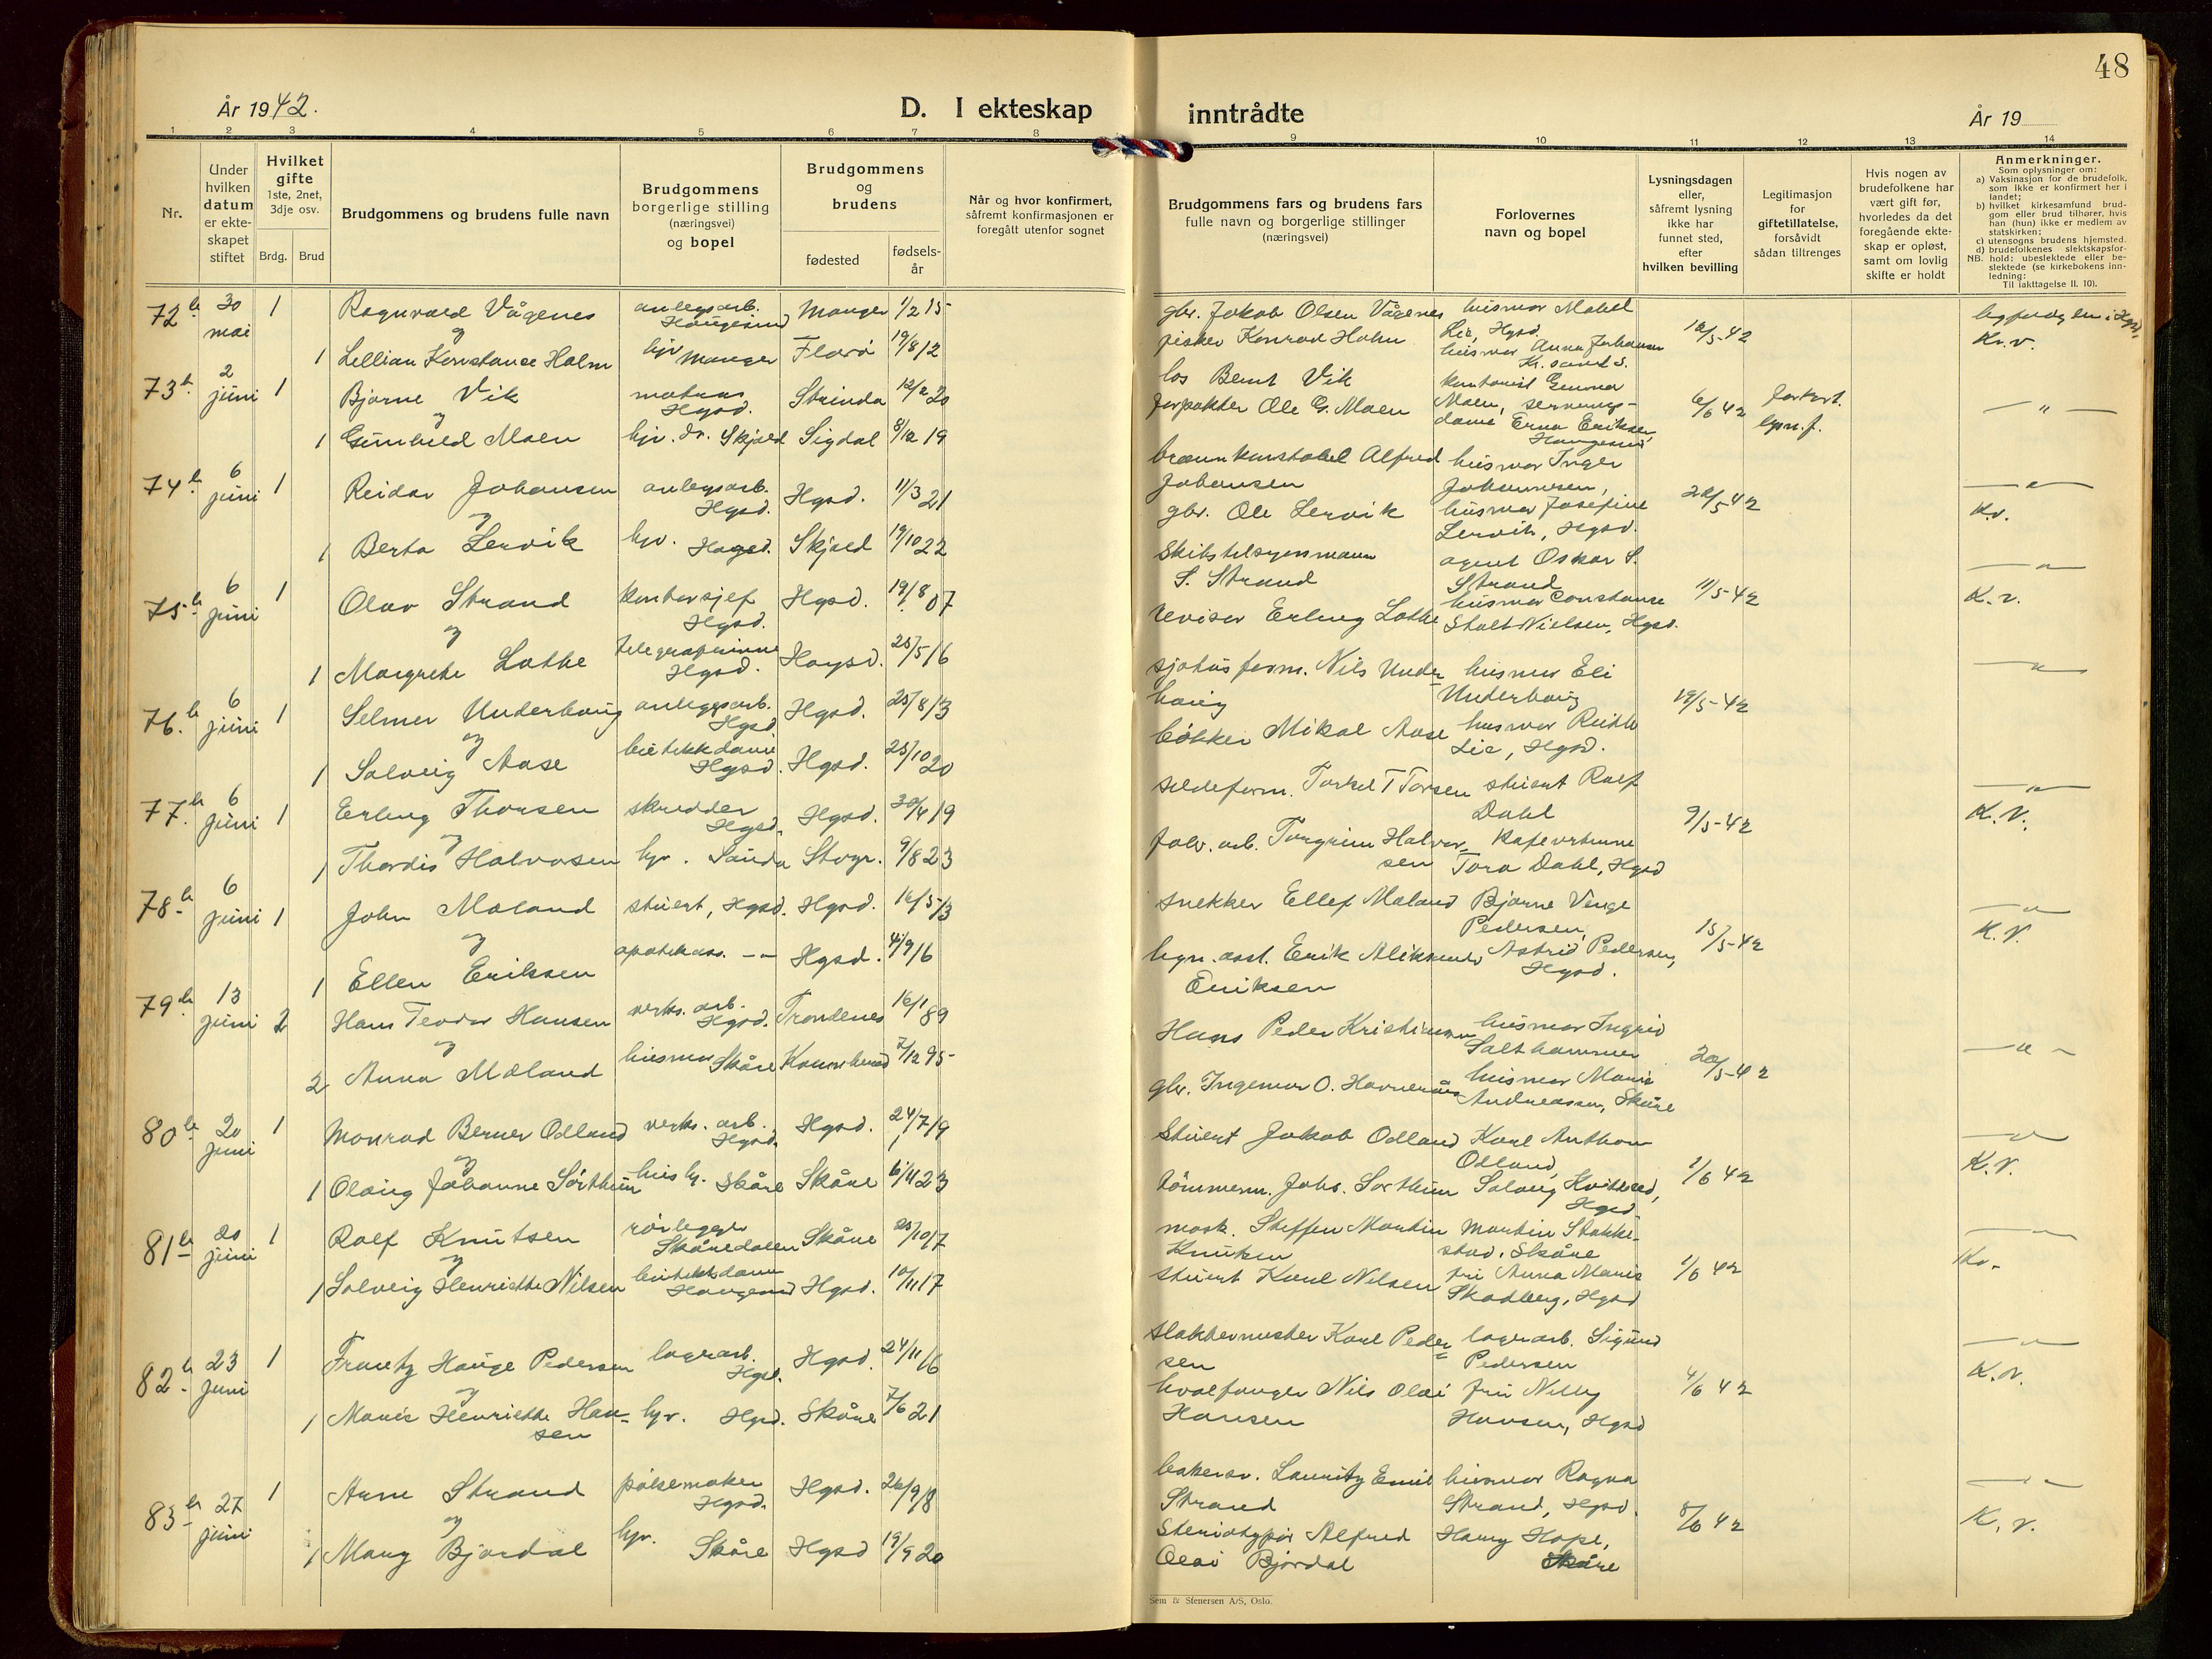 48
År 1942.
D. I ekteskap inntrådte
År 19
1 2 3 4 5 6 7 8 9 10 11 12 13 14
Nr.
Under
hvilken
datum
er ekte-
skapet
stiftet
Hvilket
gifte
1ste, 2net,
3dje osv.
Brdg. Brud
Brudgommens og brudens fulle navn
Brudgommens
borgerlige stilling
(næringsvei)
og bopel
Brudgommens
og
brudens
fødested
fødsels-
år
Når og hvor konfirmert,
såfremt konfirmasjonen er
foregått utenfor sognet
Brudgommens fars og brudens fars
fulle navn og borgerlige stillinger
(næringsvei)
Forlovernes
navn og bopel
Lysningsdagen
eller,
såfremt lysning
ikke har
funnet sted,
efter
hvilken bevilling
Legitimasjon
for
giftetillatelse,
forsåvidt
sådan tiltrenges
Hvis nogen av
brudefolkene har
vært gift før,
hvorledes da det
foregående ekte-
skap er opløst,
samt om lovlig
skifte er holdt
Anmerkninger.
Som oplysninger om:
a) Vaksinasjon for de brudefolk,
som ikke er konfirmert her i
landet;
b) hvilket kirkesamfund brud-
gom eller brud tilhører, hvis
han (hun) ikke er medlem av
statskirken;
c) utensogns brudens hjemsted.
d) brudefolkenes slektskapsfor-
NB. hold: ubeslektede eller be-
slektede (se kirkebokens inn-
ledning:
Til iakttagelse II. 10).
72 30 mai 1 Ragnvald Vågenes anlegsarb. Haugesund Manger 1/2 15 gbr. Jakob Olsen Vågenes husmor Mabel
og
1 Lillian Konstanse Holm hjv Manger Florö 19/8 12 fisker Konrad Holm Lie, Hgsd. husmor Anna Johansen 12/5-42 Kr. v.
73 2 juni 1 Bjarne Vik matros Hgsd. Strinda 12/2 20 los Bernt Vik
og
1 Gunhild Moen hjv. Skjold Sigdal 8/12 19 forpakter Ole G. Moen Moen, serverings-
dame Erna Eriksen, Haugesund 6/6 42 — " —
74 6 juni 1 Reidar Johansen anlegsarb. Hgsd. Hgsd. 11/3 21 brannkonstabel Alfred Johansen husmor Inger Johannesen,
og
1 Berta Lervik hjv. Haugsd. Skjold 19/10 22 gbr. Ole Lervik husmor Josefine Lervik, Hgsd. 20/5 42 — " — K.v.
75 6 juni 1 Olav Strand kontorsjef Hgsd. Hgsd. 19/8 07 Skibstilsynsmann S. Strand agent Oskar S. Strand
og
1 Margrete Lothe telegrafistinne Hgsd. Haugsd. 25/5 16 revisor Erling Lothe husmor Constanse Stolt-Nielsen, Hgsd. 11/5-42 — " — K. v.
76. 6 juni 1 Selmer Underhaug anleggsarb. Hgsd Hgsd. 25/8 13 sjøhusform. Nils Underhaug husmor Eli Underhaug
og
1 Solveig Aase butikkdame Hgsd. Hgsd. 25/10 20 bökker Mikal Aase husmor Lie, Hgsd. 19/5-42 — " —
77. 6 juni 1 Erling Thorsen skredder Hgsd. Hgsd. 30/4 19 sildeform. Torkel T Torsen stuert Rolf Dahl
og
1 Thordis Halvorsen hjv. Sauda Stvgr. 9/8 23 fabr. arb. Torgrim Halvorsen kafevertinne Tora Dahl, Hgsd 9/5-42 — " — K. V.
78 6 juni 1 John Moland stuert, Hgsd. Hgsd. 16/5 13 snekker Ellef Moland Bjarne Venge Pedersen,
og
1 Ellen Eriksen apotekass. — " — Hgsd. 4/9 16 Erik Eriksen Astrid Pedersen, Hgsd. 15/5-42 — " — K. V.
79 13 juni 2 Hans Teodor Hansen verks. arb. Hgsd. Trondenes 16/1 89 Hans Peder Kristiansen husmor Ingrid Salthammer
og
2 Anna Mæland husmor Skåre 7/12 95 gbr. Ingemar O. husmor Marie Andreassen, Skåre 20/5-42 — " —
80 20 juni 1 Monrad Berner Odland verks. arb. Hgsd. Hgsd. 24/7 19 Stuert Jakob Odland Karl Anthon Odland,
og
1 Olaug Johanne Sörthun hush. Skåre Skåre 6/11 23 tömmerm. Johs. Sørthun Solveig Hgsd 1/6 42 — " — K. V.
81 20 juni 1 Rolf Knutsen rörlegger Skåredalen Skåre 25/10 17 mask. Steffen Martin Knutsen Martin Stokkestad, Skåre
og
1 Solveig Henriette Nilsen butikkdame Haugesund Hgsd. 10/11 17 stuert Karl Nilsen frü Anna Marie Skadberg, Hgsd 1/6 42 — " — Kv.
82 23 juni 1 Frantz Hauge Pedersen lagerarb. Hgsd. Hgsd. 24/11 16 slaktermester Karl Pedersen lagerarb. Sigurd Pedersen
og
1 Marie Henriette Hansen hjv. Hgsd. Skåre 7/6 21 hvalfanger Nils Olai Hansen frü Nelly Hansen, Hgsd 4/6 42 — " — K. v.
83 27 juni 1 Arne Strand pölsemaker Hgsd. Hgsd. 26/9 18 bakersv. Lauritz Emil Strand husmor Ragna Strand, Hgsd.
og
1 Mary Bjordal hjv. Skåre Hgsd 19/9 20 Steriotypör Alfred Olai Bjordal Harry Hope, Skåre 8/6 42 — " — K. v.
Sem & Stenersen A/S, Oslo.